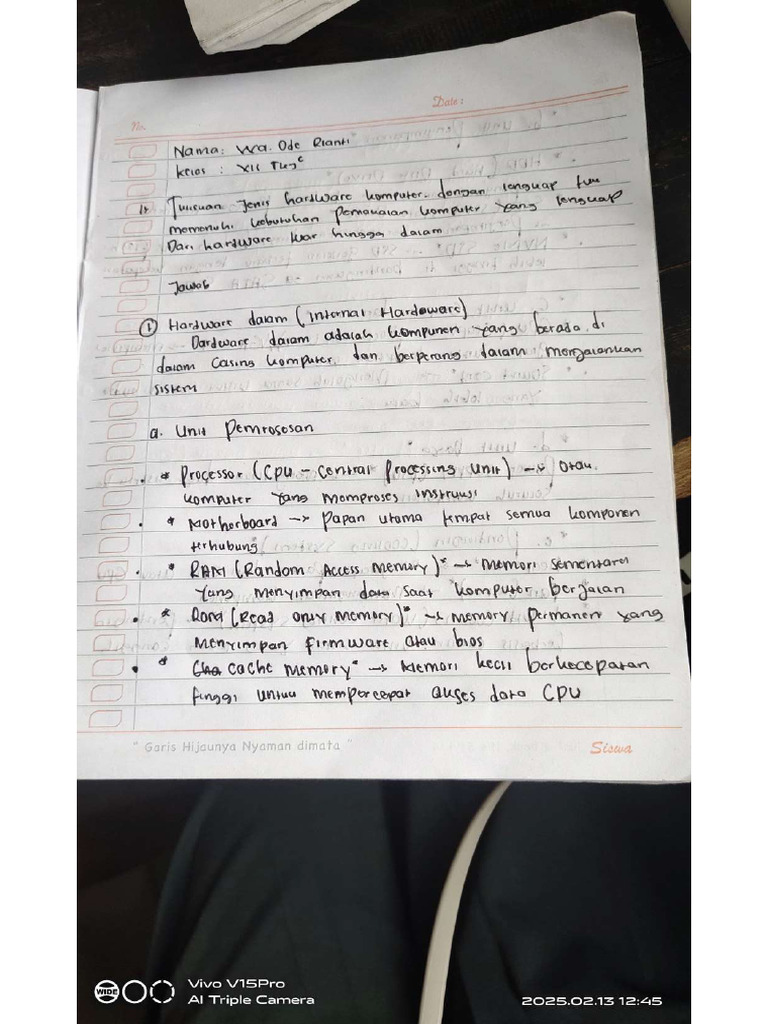 No.
Date:
Nama: Wa. Ode Rianti
Kelas : XII
1. Tuliskan Jenis hardware komputer. dengan lengkap
memenuhi kebutuhan pemakaian komputer yang lengkap
Dari hardware luar hingga dalam
Jawab
① Hardware dalam (Internal Hardaware)
- Dardware dalam adalah kompunen yang berada di
dalam casing komputer, dan berperang dalam menjalankan
sistem
a. Unit Pemrosesan
* Processor (CPU - Central Processing Unit) → Otau
komputer yang memproses instruksi
* Motherboard → Papan utama tempat semua komponen
terhubung
* RAM (Random Access Memory)* → Memori sementara
yang menyimpan data saat komputer berjalan
* ROM (Read only Memory)* → Memory permanen yang
menyimpan firmware atau bios
* cache Memory* → Memori kecil berkecepatan
tinggi untuk mempercepat akses data CPU
" Garis Hijaunya Nyaman dimata "
Siswa
WIDE
Vivo V15Pro
AI Triple Camera
2025.02.13 12:45